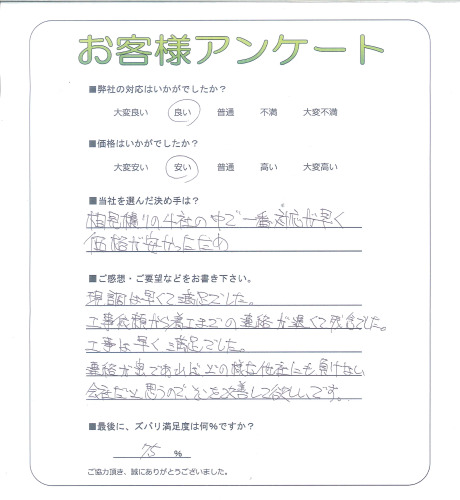 お客様アンケート
■弊社の対応はいかがでしたか?
大変良い 良い 普通 不満 大変不満
■価格はいかがでしたか?
大変安い 安い 普通 高い 大変高い
■当社を選んだ決め手は?
相見積りの4社の中で一番対応が早く
価格が安かったため
■ご感想・ご要望などをお書き下さい。
現調は早くて満足でした。
工事依頼から着工までの連絡が遅くて残念でした。
工事は早く満足でした。
連絡が早であればどの様な他社にも負けない
会社だと思うので、を改善して欲しいです。
■最後に、ズバリ満足度は何%ですか?
75 %
ご協力頂き、誠にありがとうございました。